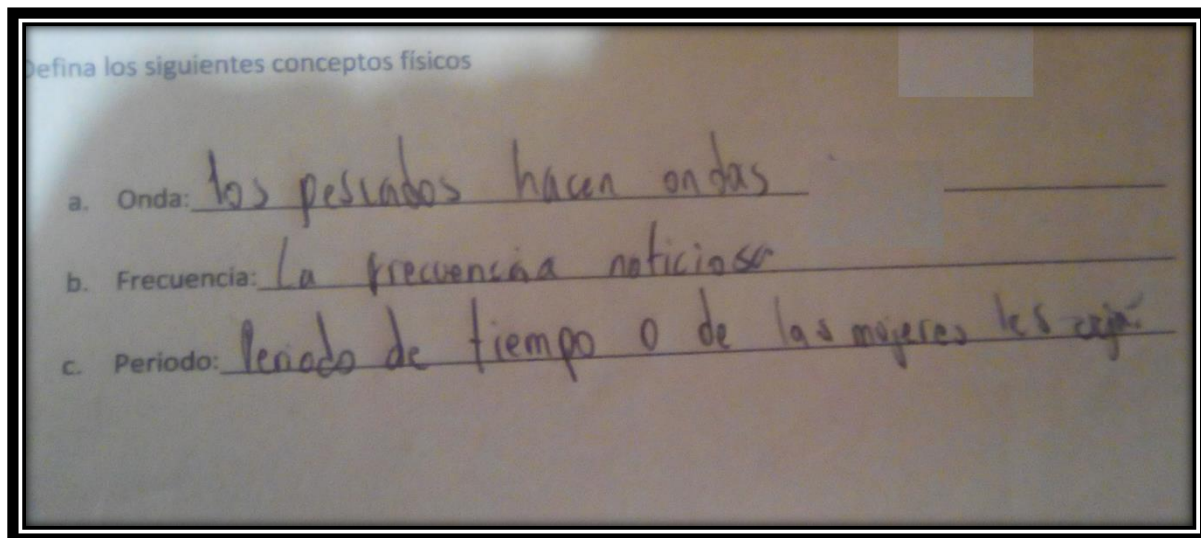 Defina los siguientes conceptos físicos
a. Onda: los pescados hacen ondas
b. Frecuencia: La frecuencia noticiosa
c. Periodo: Periodo de tiempo o de las mujeres les